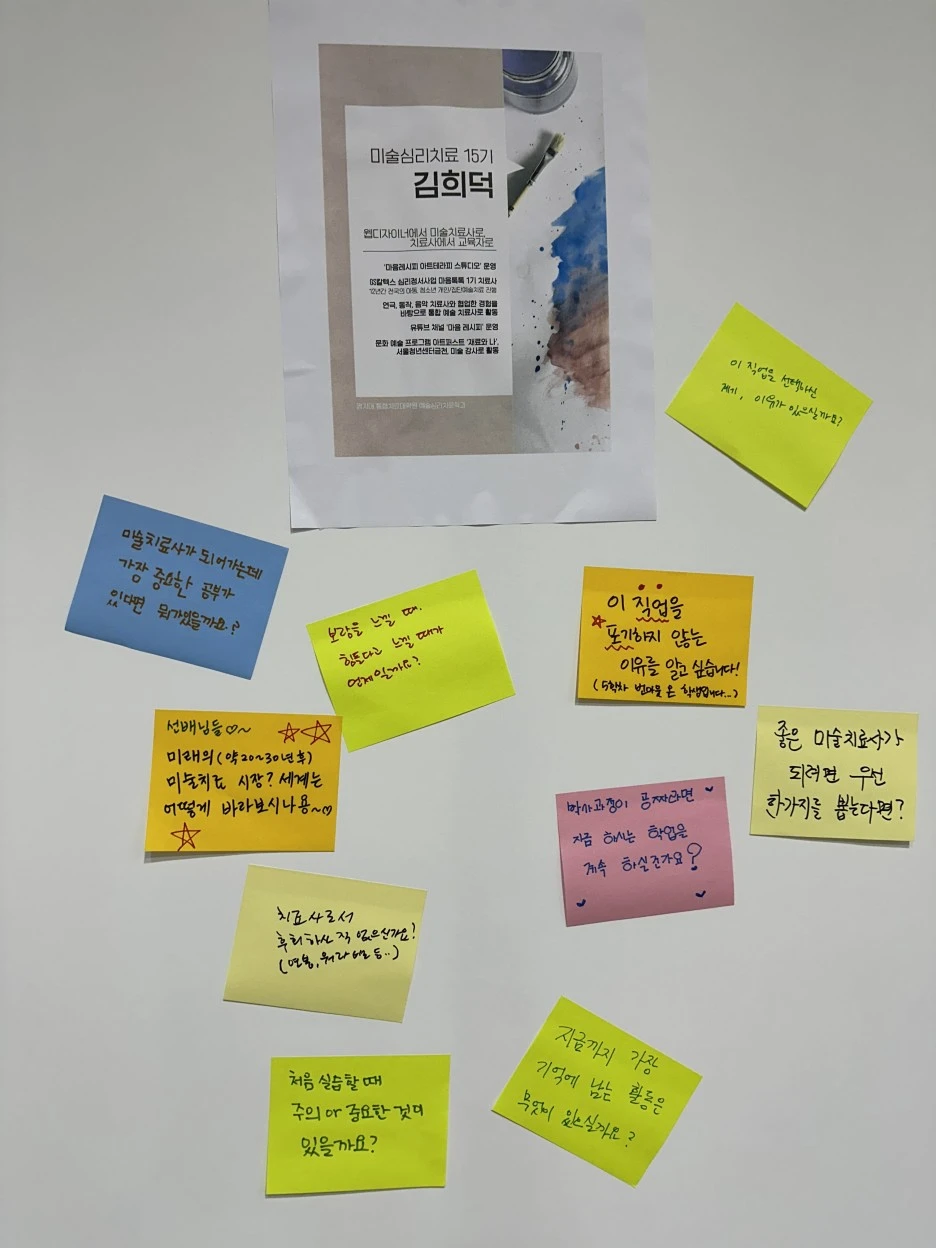 미술심리치료 15기
김희덕
웹디자이너에서 미술치료사로,
치료사에서 교육자로
'마음레시피 아트테라피 스튜디오' 운영
GS칼텍스 심리정서사업 마음톡톡 1기 치료사
12년간 전국의 아동, 청소년 개인/집단예술치료 진행
연극, 동작, 음악 치료사와 협업한 경험을
바탕으로 통합 예술 치료사로 활동
유튜브 채널 '마음 레시피' 운영
문화 예술 프로그램 아트퍼스트 '재료와 나',
서울청년센터금천, 미술 강사로 활동
통합치료대학원 예술심리치료학과
이 직업을 선택하신
계기, 이유가 있으실까요?
미술치료사가 되어가는데
가장 중요한 공부가
있다면 뭐가있을까요?
보람을 느낄 때,
힘들다고 느낄 때가
언제일까요?
이 직업을
포기하지 않는
이유를 알고 싶습니다!
(5학차 번아웃 온 학생입니다...)
선배님들♡~
미래의(약20~30년후)
미술치료 시장? 세계는
어떻게 바라보시나용~♡
좋은 미술치료사가
되려면 우선
한가지를 뽑는다면?
박사과정이 공짜라면
지금 하시는 학업을
계속 하실건가요?
치료사로서
후회하신 적 없으신가요?
(연봉, 워라밸 등..)
지금까지 가장
기억에 남는 활동은
무엇이 있으실까요?
처음 실습할 때
주의 or 중요한 것이
있을까요?